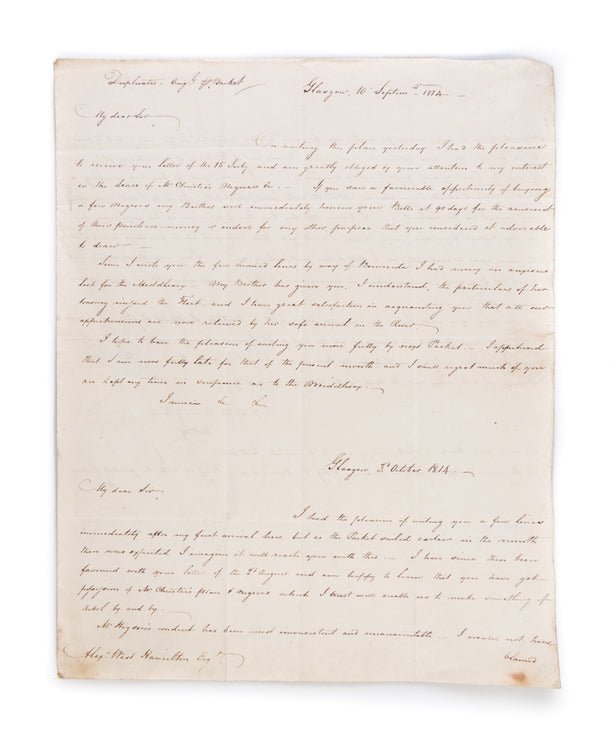 Duplicate. Orig.l p.r Packet
Glasgow 10 Septem.r 1814.
My dear Sir,
On writing this place yesterday I had the pleasure
to receive your letter of the 15 July and am greatly obliged by your attention to my interest
in the Lease of Mr Christie's Negroes &c. – If you saw a favourable opportunity of buying
a few Negroes my Brother will immediately honour your Bills at 90 days for the amount
of their purchase-money or indeed for any other purpose that you considered it adviseable
to draw –
Since I wrote you the few hurried lines by way of I had many an anxious
look for the Middlesex – My Brother has given you, I understand, the particulars of her
having the Fleet, and I have great satisfaction in acquainting you that all our
apprehensions are now relieved by her safe arrival in the River.
I hope to have the pleasure of writing you more fully by next Packet. – I apprehend
that I am now fully late for that of the present month and I shall regret much if you
are kept any time in suspence as to the Middlesex. –
I remain &c &c
Glasgow, 3.d October 1814 –
My dear Sir,
I had the pleasure of writing you a few lines
immediately after my first arrival here but as the Packet sailed earlier in the month
than was expected I imagine it will reach you with this – I have since then been
favoured with your letter of the 2.d August and am happy to learn that you have got
possession of Mr Christie's place & negroes which I trust will enable us to make something of
by and by. –
Mr conduct has been most inconsistent and unaccountable – I would not have
blamed
Alex.r West Hamilton Esq.r